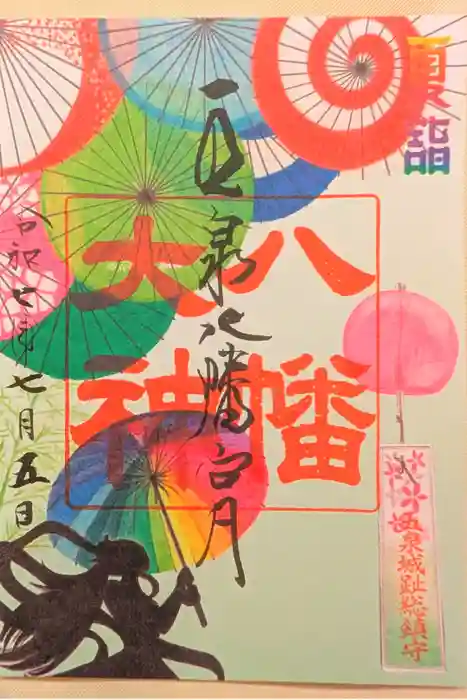 夏詣
五泉城趾総鎮守
八幡
大神
五泉八幡宮
令和七年七月五日